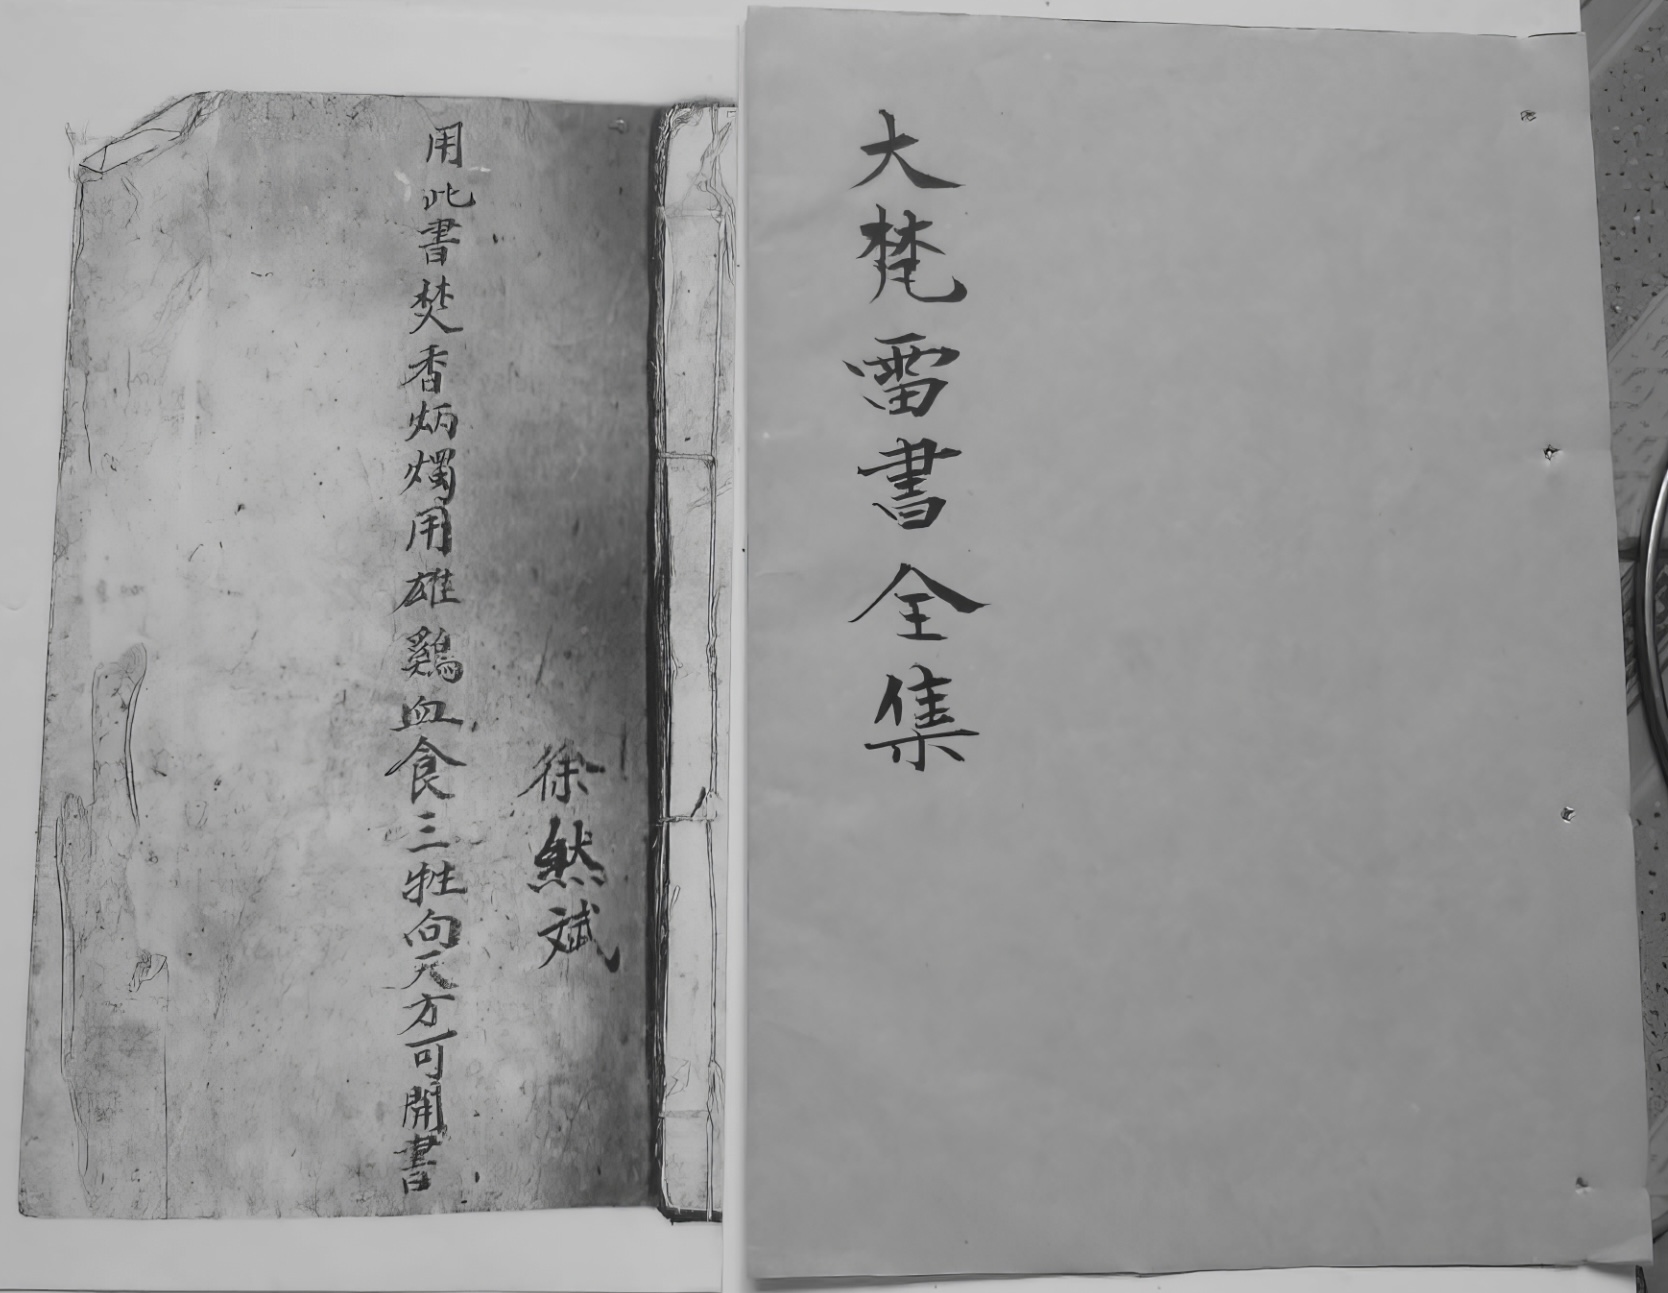 大梵雷書全集
徐然斌
用此書焚香炳燭用雄鷄血食三牲向天方可開書